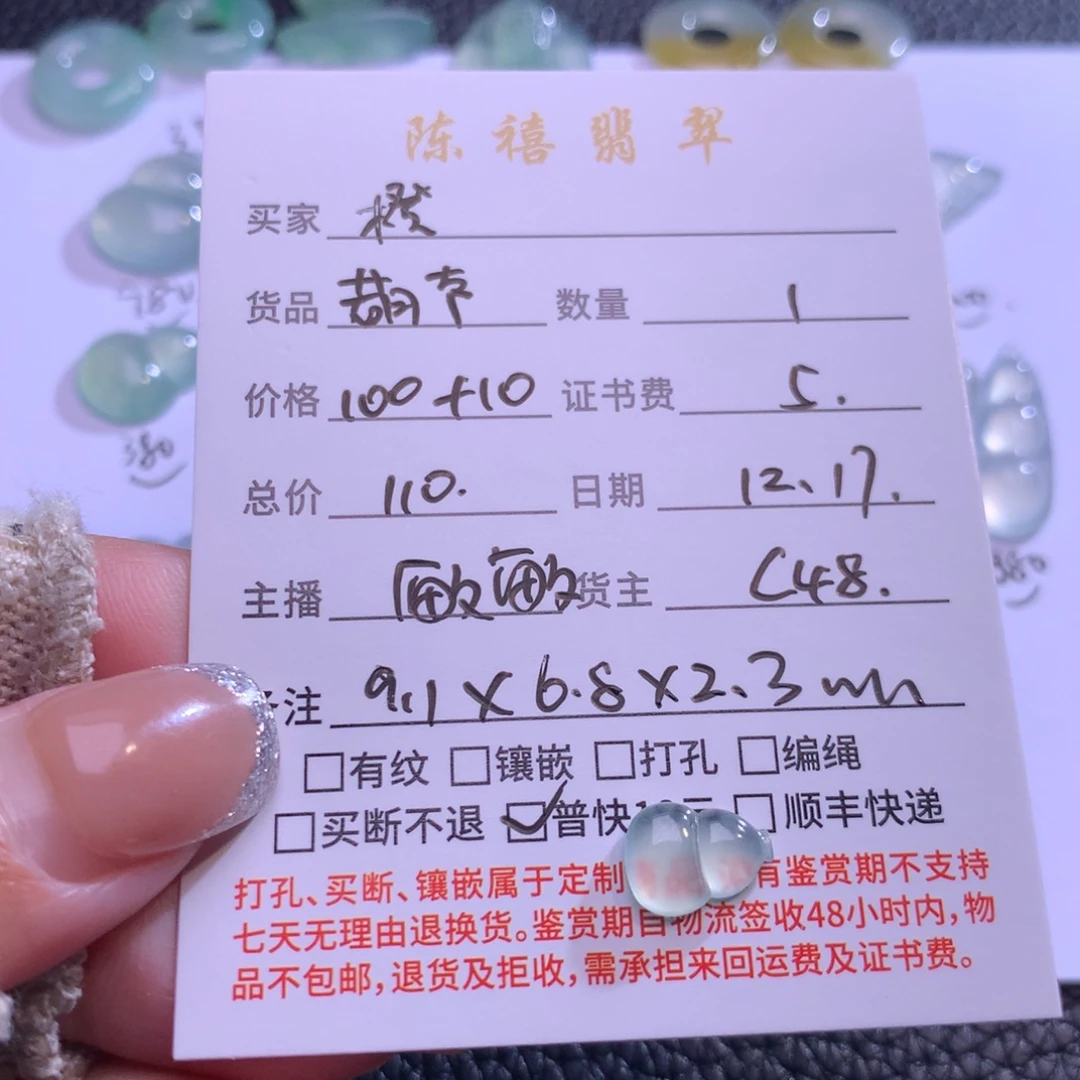 陈禧翡翠
买家
货品 葫芦 数量 1
价格 100+10 证书费 5.
总价 110. 日期 12、17.
主播 敏敏 货主 C48.
注 9.1×6.8×2.3mm
□有纹 □镶嵌 □打孔 □编绳
□买断不退 ☑普快 □顺丰快递
打孔、买断、镶嵌属于定制 有鉴赏期不支持
七天无理由退换货。鉴赏期自物流签收48小时内,物
品不包邮,退货及拒收,需承担来回运费及证书费。
980
380
380